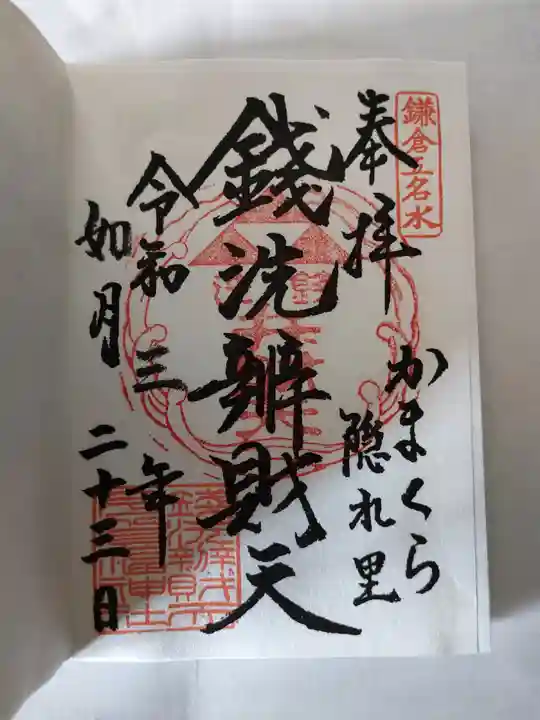 鎌倉五名水
奉拝
かまくら
隠れ里
銭洗辨財天
令和三年
如月二十三日